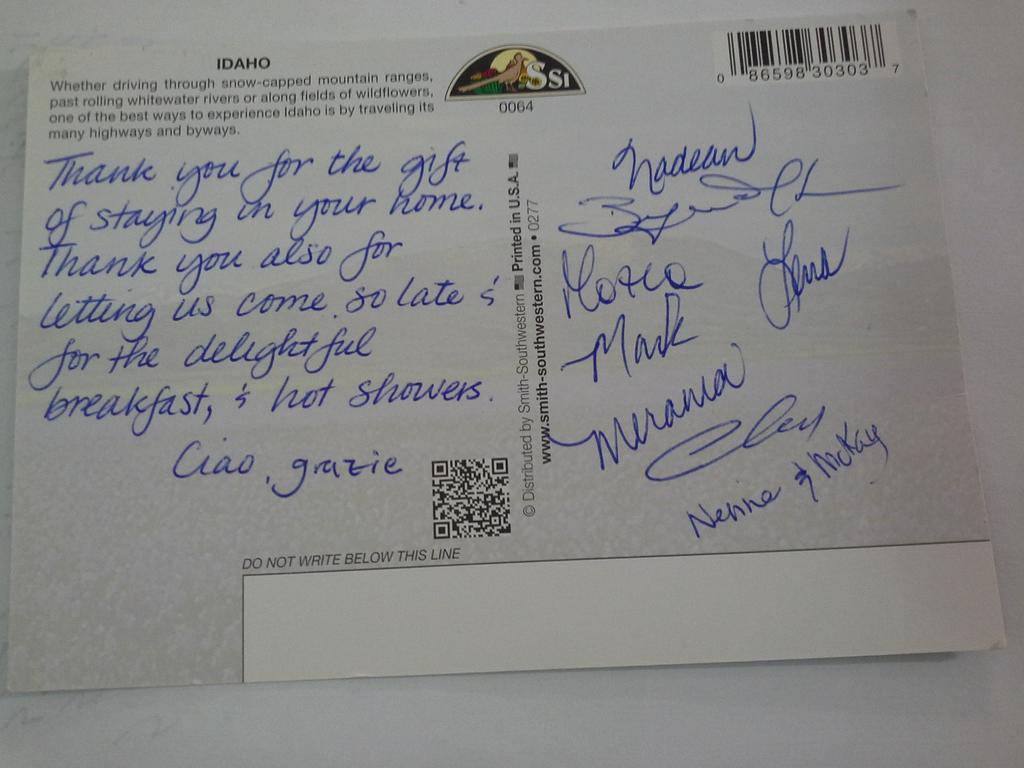 IDAHO
Whether driving through snow-capped mountain ranges,
past rolling whitewater rivers or along fields of wildflowers,
one of the best ways to experience Idaho is by traveling its
many highways and byways.
SSI
0064
0 86598 30303 7
Thank you for the gift
of staying in your home.
Thank you also for
letting us come so late &
for the delightful
breakfast, & hot showers.
Ciao, grazie
© Distributed by Smith-Southwestern Printed in U.S.A.
www.smith-southwestern.com • 0277
Nadean
Mark
Miranda
Clay
Nenna & McKay
DO NOT WRITE BELOW THIS LINE